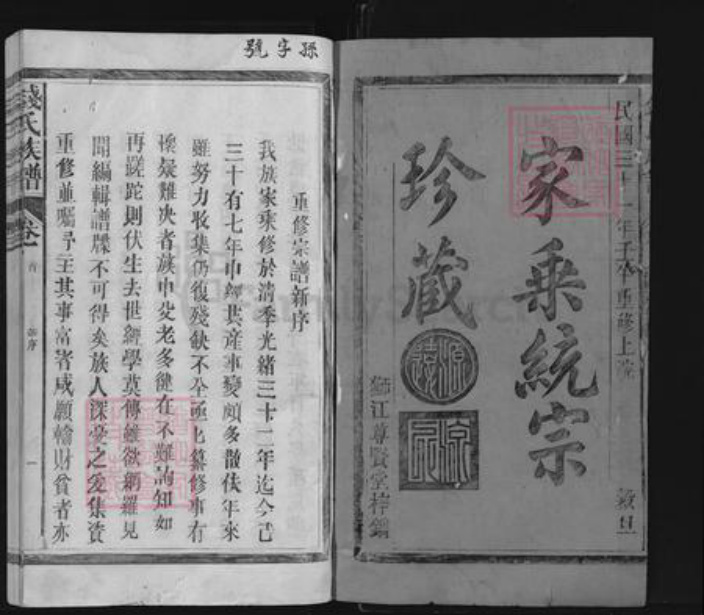 民國三十一年壬午重修上浣
家乘統宗
珍藏
獅江尊賢堂梓鐫
穀旦
孫字號
重修宗譜新序
我族家乘修於清季光緒三十二年迄今已
三十有七年中經共產事變頗多散佚年來
雖努力收集仍復殘缺不全亟也纂修事有
懷疑難決者族中父老多健在不難詢知如
再蹉跎則伏生去世經學莫傳雖欲網羅見
聞編輯譜牒不可得矣族人深憂之爰集資
重修並囑予主其事富者咸願輸財貧者亦
錢氏族譜
卷一
首
新序
一